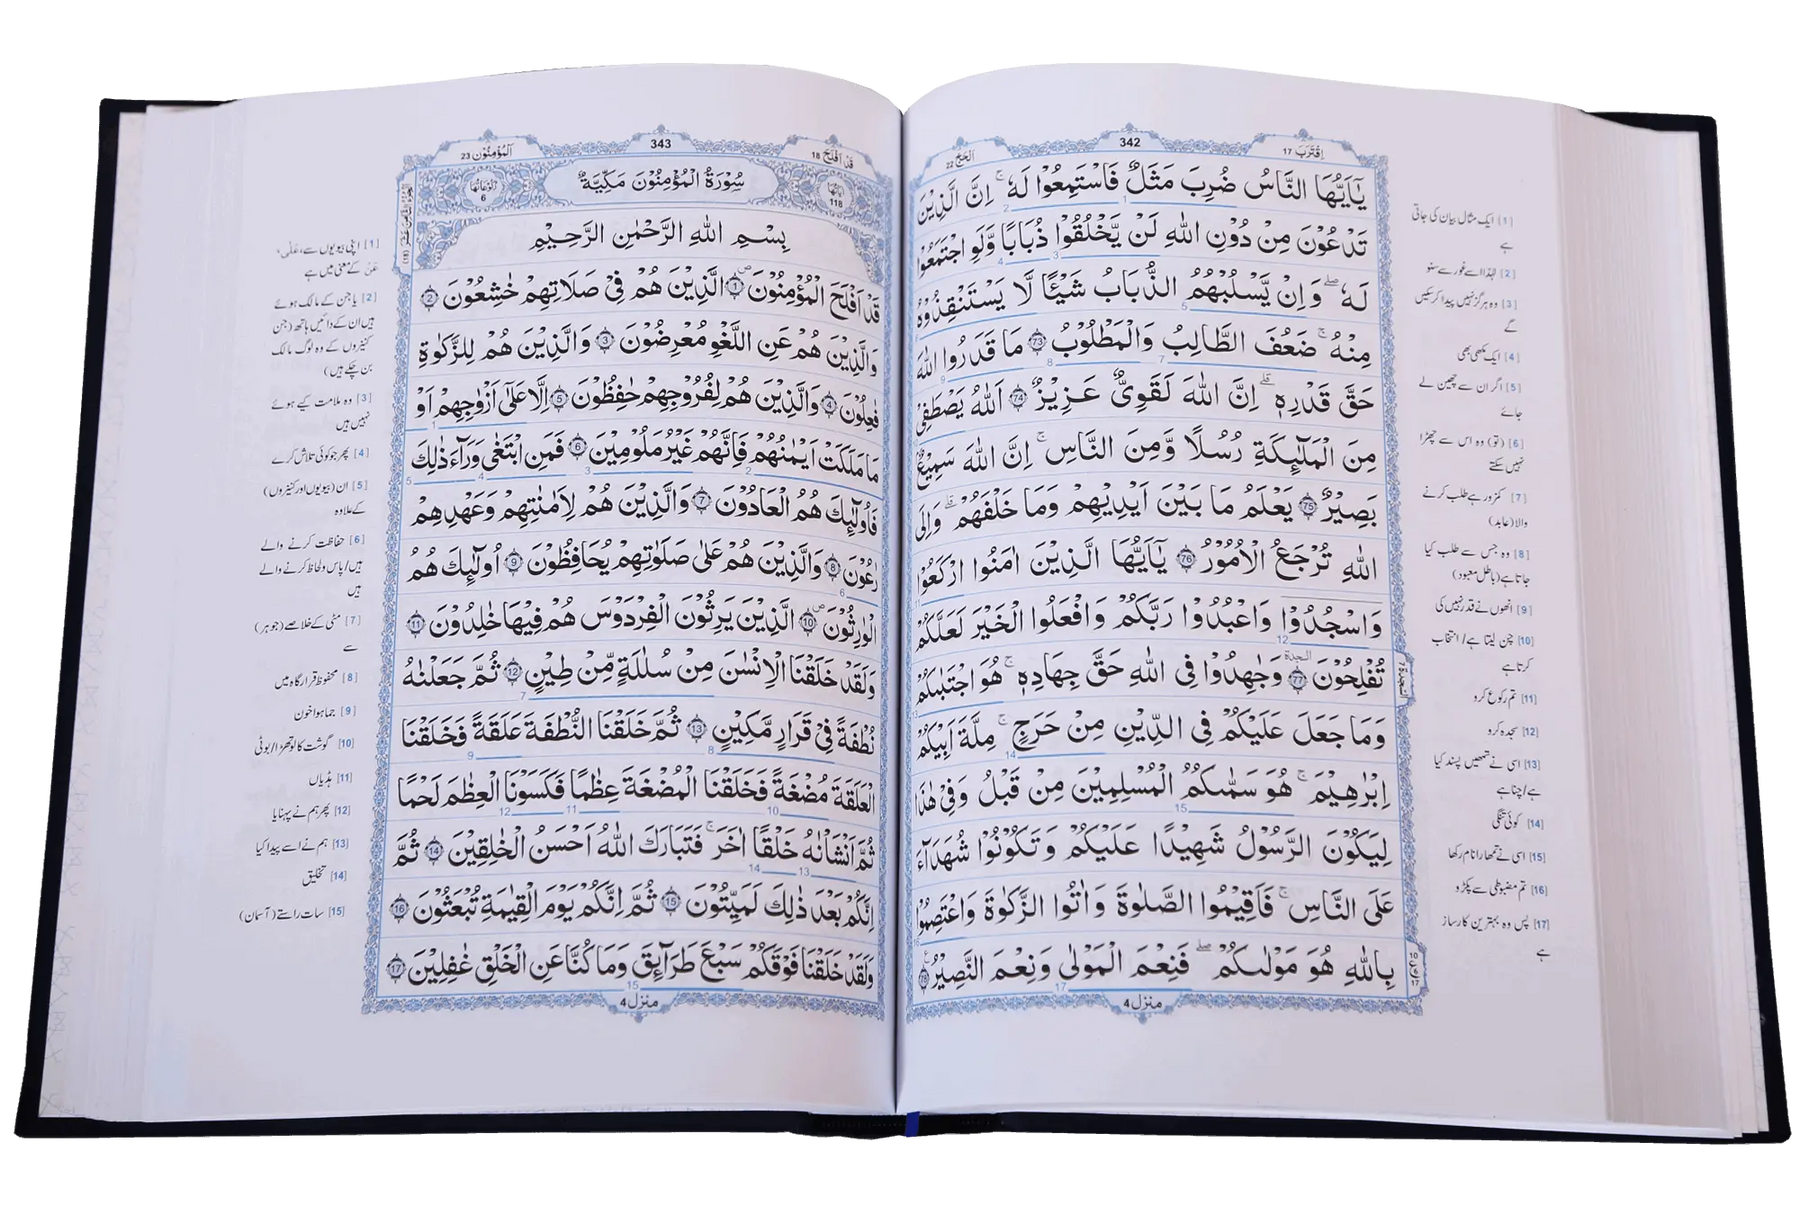 اِقْتَرَبَ 17
342
اَلْحَجّ 22
يٰۤاَيُّهَا النَّاسُ ضُرِبَ مَثَلٌ فَاسْتَمِعُوْا لَهٗ ؕ اِنَّ الَّذِيْنَ
تَدْعُوْنَ مِنْ دُوْنِ اللّٰهِ لَنْ يَّخْلُقُوْا ذُبَابًا وَّلَوِ اجْتَمَعُوْا
لَهٗ ؕ وَاِنْ يَّسْلُبْهُمُ الذُّبَابُ شَيْـًٔا لَّا يَسْتَنْقِذُوْهُ
مِنْهُ ؕ ضَعُفَ الطَّالِبُ وَالْمَطْلُوْبُ 73 مَا قَدَرُوا اللّٰهَ
حَقَّ قَدْرِهٖ ؕ اِنَّ اللّٰهَ لَقَوِىٌّ عَزِيْزٌ 74 اَللّٰهُ يَصْطَفِىْ
مِنَ الْمَلٰٓئِكَةِ رُسُلًا وَّمِنَ النَّاسِ ؕ اِنَّ اللّٰهَ سَمِيْعٌۢ
بَصِيْرٌ 75 يَعْلَمُ مَا بَيْنَ اَيْدِيْهِمْ وَمَا خَلْفَهُمْ ؕ وَاِلَى
اللّٰهِ تُرْجَعُ الْاُمُوْرُ 76 يٰۤاَيُّهَا الَّذِيْنَ اٰمَنُوا ارْكَعُوْا
وَاسْجُدُوْا وَاعْبُدُوْا رَبَّكُمْ وَافْعَلُوا الْخَيْرَ لَعَلَّكُمْ
تُفْلِحُوْنَ 77 وَجَاهِدُوْا فِى اللّٰهِ حَقَّ جِهَادِهٖ ؕ هُوَ اجْتَبٰىكُمْ
وَمَا جَعَلَ عَلَيْكُمْ فِى الدِّيْنِ مِنْ حَرَجٍ ؕ مِلَّةَ اَبِيْكُمْ
اِبْرٰهِيْمَ ؕ هُوَ سَمّٰىكُمُ الْمُسْلِمِيْنَ مِنْ قَبْلُ وَفِىْ هٰذَا
لِيَكُوْنَ الرَّسُوْلُ شَهِيْدًا عَلَيْكُمْ وَتَكُوْنُوْا شُهَدَآءَ
عَلَى النَّاسِ ۚ فَاَقِيْمُوا الصَّلٰوةَ وَاٰتُوا الزَّكٰوةَ وَاعْتَصِمُوْا
بِاللّٰهِ هُوَ مَوْلٰىكُمْ ۚ فَنِعْمَ الْمَوْلٰى وَنِعْمَ النَّصِيْرُ 78
منزل 4
[1] ایک مثال بیان کی جاتی
ہے
[2] لہٰذا اسے غور سے سنو
[3] وہ ہرگز نہیں پیدا کر سکیں
گے
[4] ایک مکھی بھی
[5] اگر ان سے چھین لے
جائے
[6] (تو) وہ اس سے چھڑا
نہیں سکتے
[7] کمزور ہے طلب کرنے
والا (عابد)
[8] وہ جس سے طلب کیا
جاتا ہے (باطل معبود)
[9] انھوں نے قدر نہیں کی
[10] چن لیتا ہے/ انتخاب
کرتا ہے
[11] تم رکوع کرو
[12] سجدہ کرو
[13] اسی نے تمھیں پسند کیا
ہے/چنا ہے
[14] کوئی تنگی
[15] اسی نے تمھارا نام رکھا
[16] تم مضبوطی سے پکڑو
[17] پس وہ بہترین کارساز
ہے
قَدْ اَفْلَحَ 18
343
اَلْمُؤْمِنُوْن 23
اٰيَاتُهَا 118
سُوْرَةُ الْمُؤْمِنُوْنَ مَكِّيَّةٌ
رُكُوْعَاتُهَا 6
بِسْمِ اللّٰهِ الرَّحْمٰنِ الرَّحِيْمِ
قَدْ اَفْلَحَ الْمُؤْمِنُوْنَ 1 الَّذِيْنَ هُمْ فِىْ صَلَاتِهِمْ خٰشِعُوْنَ 2
وَالَّذِيْنَ هُمْ عَنِ اللَّغْوِ مُعْرِضُوْنَ 3 وَالَّذِيْنَ هُمْ لِلزَّكٰوةِ
فٰعِلُوْنَ 4 وَالَّذِيْنَ هُمْ لِفُرُوْجِهِمْ حٰفِظُوْنَ 5 اِلَّا عَلٰٓى اَزْوَاجِهِمْ اَوْ
مَا مَلَكَتْ اَيْمٰنُهُمْ فَاِنَّهُمْ غَيْرُ مَلُوْمِيْنَ 6 فَمَنِ ابْتَغٰى وَرَآءَ ذٰلِكَ
فَاُولٰٓئِكَ هُمُ الْعَادُوْنَ 7 وَالَّذِيْنَ هُمْ لِاَمٰنٰتِهِمْ وَعَهْدِهِمْ
رٰعُوْنَ 8 وَالَّذِيْنَ هُمْ عَلٰى صَلَوٰتِهِمْ يُحَافِظُوْنَ 9 اُولٰٓئِكَ هُمُ
الْوٰرِثُوْنَ 10 الَّذِيْنَ يَرِثُوْنَ الْفِرْدَوْسَ هُمْ فِيْهَا خٰلِدُوْنَ 11
وَلَقَدْ خَلَقْنَا الْاِنْسٰنَ مِنْ سُلٰلَةٍ مِّنْ طِيْنٍ 12 ثُمَّ جَعَلْنٰهُ
نُطْفَةً فِىْ قَرَارٍ مَّكِيْنٍ 13 ثُمَّ خَلَقْنَا النُّطْفَةَ عَلَقَةً فَخَلَقْنَا
الْعَلَقَةَ مُضْغَةً فَخَلَقْنَا الْمُضْغَةَ عِظٰمًا فَكَسَوْنَا الْعِظٰمَ لَحْمًا
ثُمَّ اَنْشَاْنٰهُ خَلْقًا اٰخَرَ ؕ فَتَبَارَكَ اللّٰهُ اَحْسَنُ الْخٰلِقِيْنَ 14 ثُمَّ
اِنَّكُمْ بَعْدَ ذٰلِكَ لَمَيِّتُوْنَ 15 ثُمَّ اِنَّكُمْ يَوْمَ الْقِيٰمَةِ تُبْعَثُوْنَ 16
وَلَقَدْ خَلَقْنَا فَوْقَكُمْ سَبْعَ طَرَآئِقَ وَمَا كُنَّا عَنِ الْخَلْقِ غٰفِلِيْنَ 17
منزل 4
[1] اپنی بیویوں سے، عَلٰی،
عَنْ کے معنی میں ہے
[2] یا جن کے مالک ہوئے
ہیں ان کے دائیں ہاتھ (جن
کنیزوں کے وہ لوگ مالک
بن چکے ہیں)
[3] وہ ملامت کیے ہوئے
نہیں ہیں
[4] پھر جو کوئی تلاش کرے
[5] ان (بیویوں اور کنیزوں)
کے علاوہ
[6] حفاظت کرنے والے
ہیں/پاس ولحاظ کرنے والے
ہیں
[7] مٹی کے خلاصے (جوہر)
سے
[8] محفوظ قرار گاہ میں
[9] جما ہوا خون
[10] گوشت کا لوتھڑا/بوٹی
[11] ہڈیاں
[12] پھر ہم نے پہنایا
[13] ہم نے اسے پیدا کیا
[14] تخلیق
[15] سات راستے (آسمان)